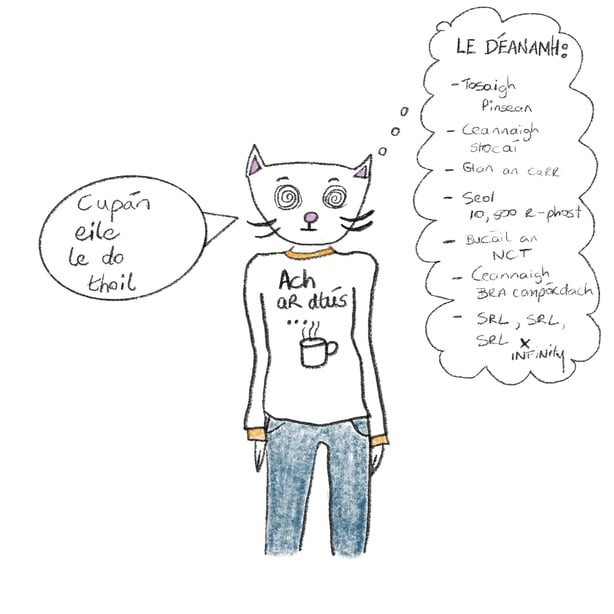 Cupán
eile
le do
thoil
Ach
aR dtús
...
LE DÉANAMH:
- Tosaigh
Pinsean
- Ceannaigh
stocaí
- Glan an caRR
- Seol
10,500 R-phost
- Bucáil an
NCT
- Ceannaigh
BRA compórdach
- SRL, SRL,
SRL x
INFINITY